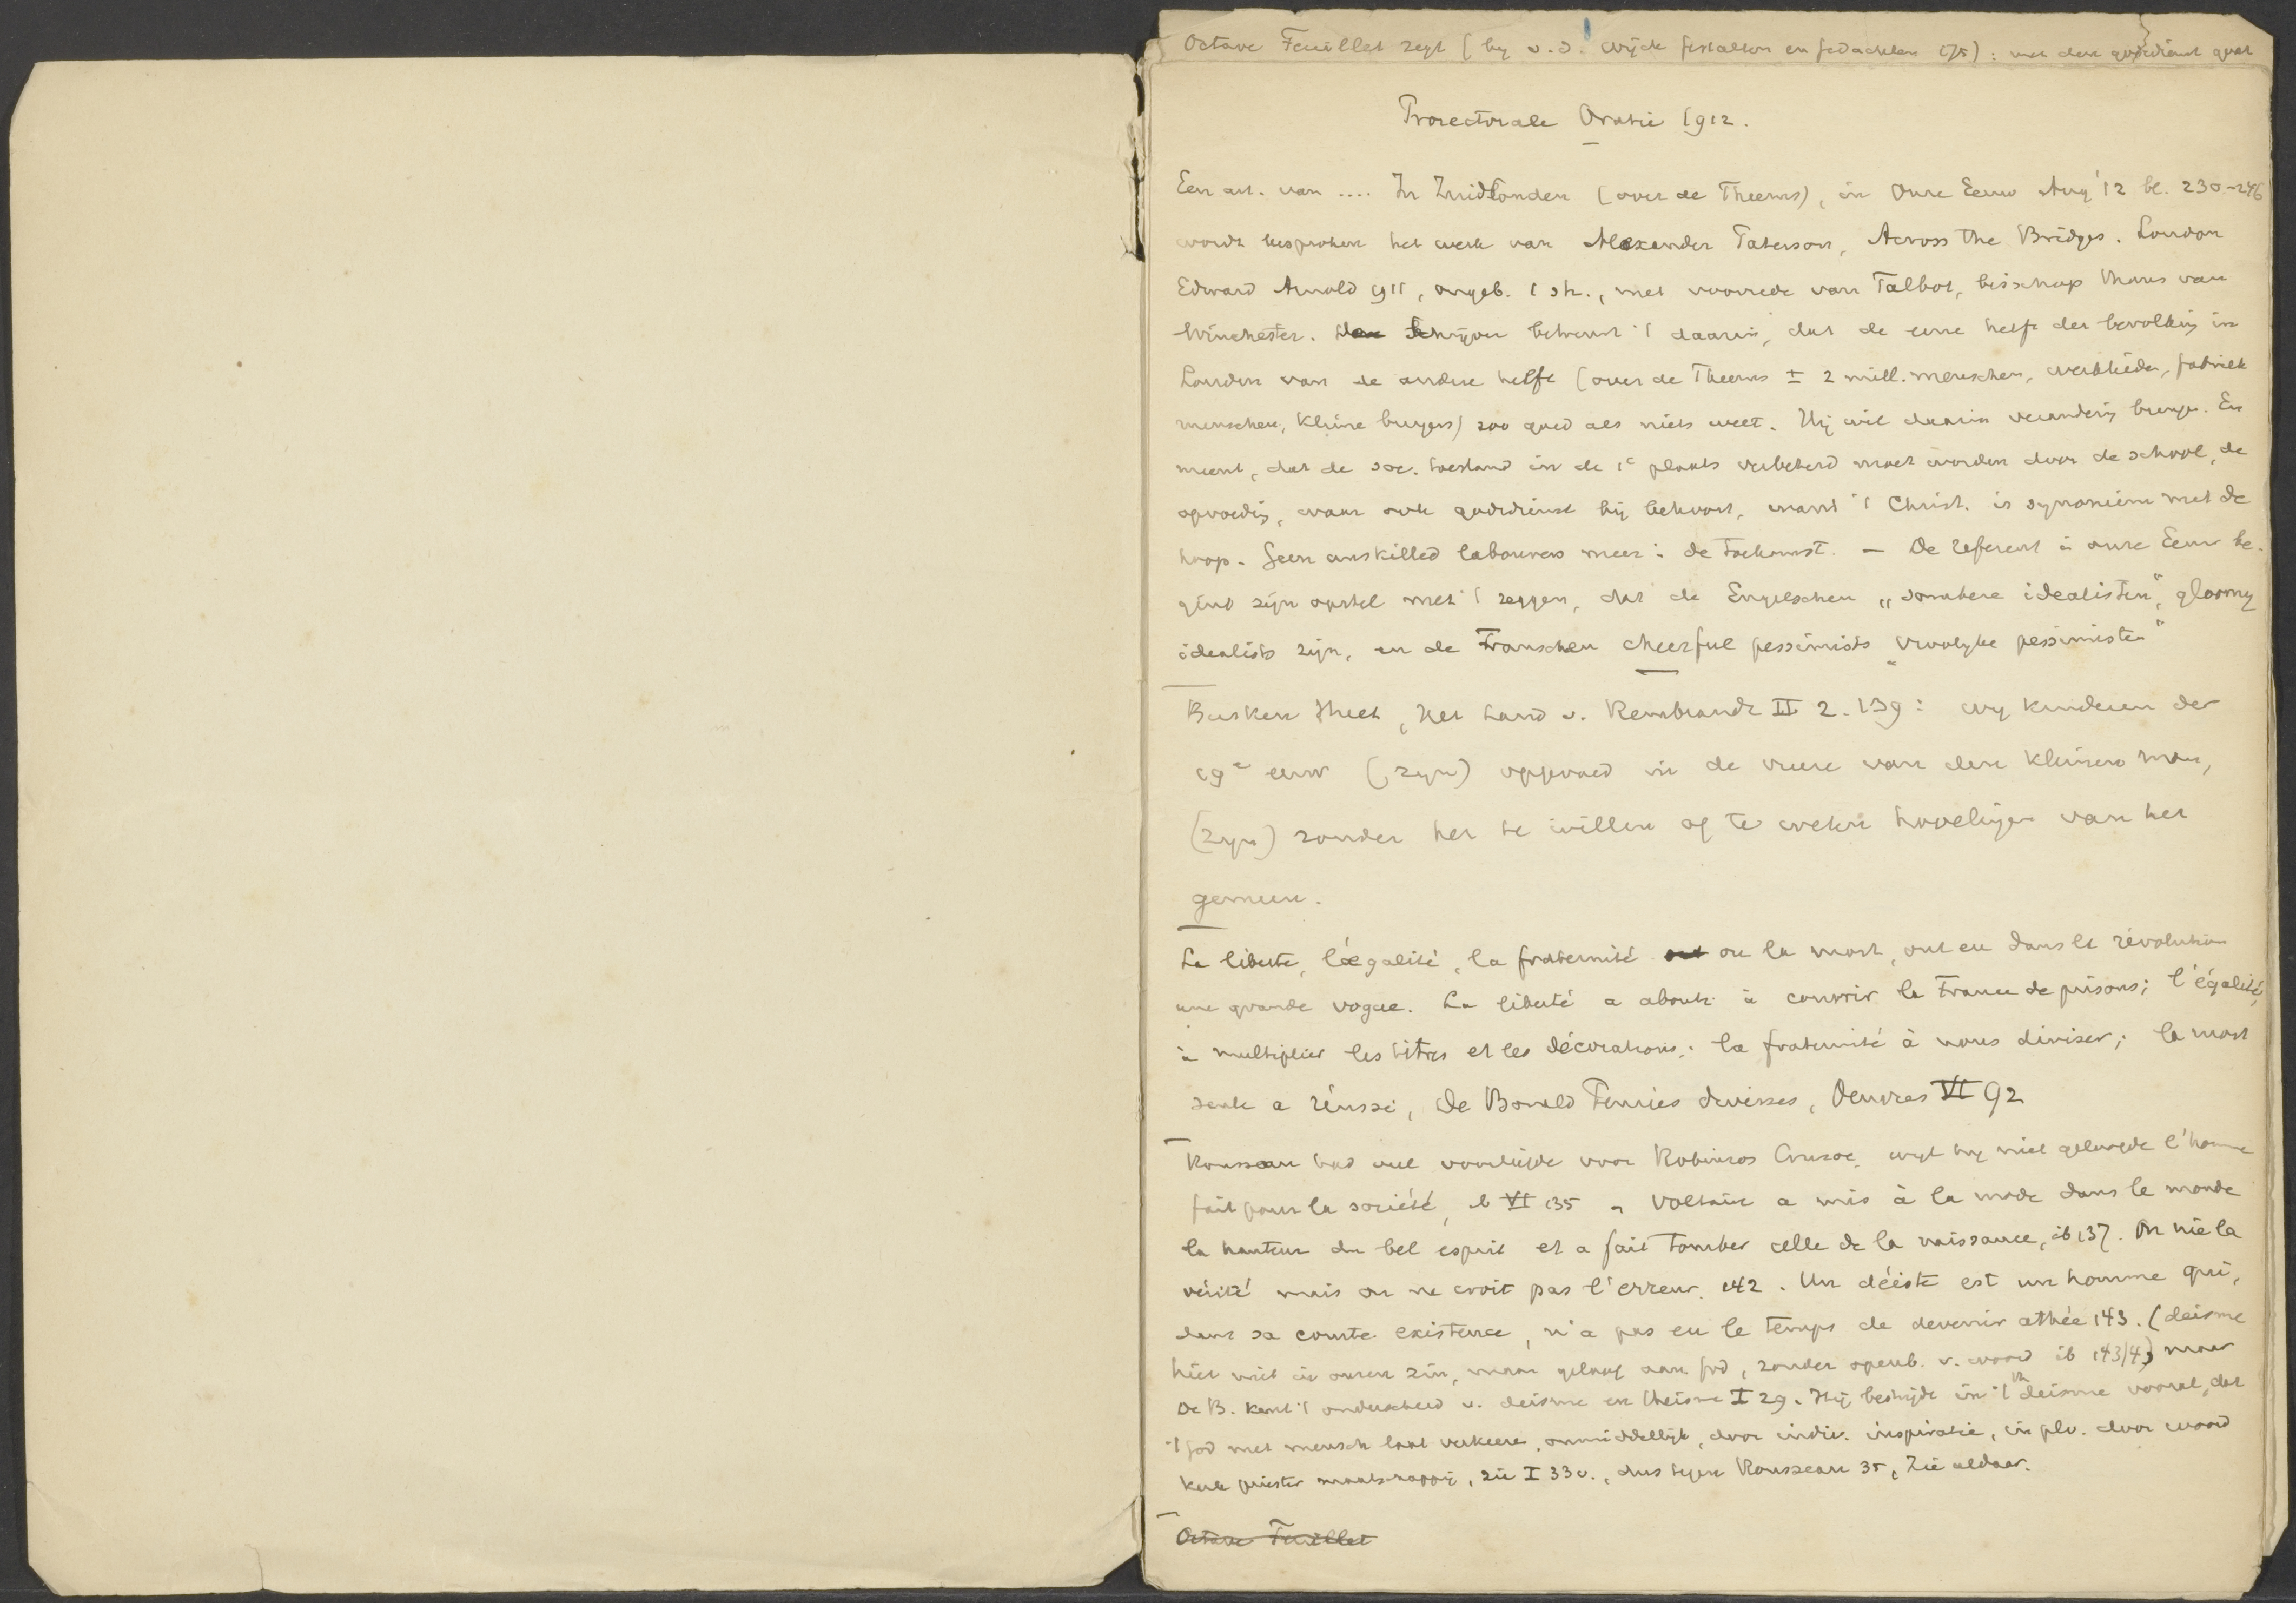 Octave Feuillet zegt (by v. d. Wijck gestalten en gedachten 175): met den godsdienst gaat
Prorectorale Oratie 1912.
Een art. van .... In Zuidlonden (over de Theems), in Onze Eeuw Aug '12 bl. 230-246
wordt besproken het werk van Alexander Paterson, Across the Bridges. London
Edward Arnold 1911, ongeb. 1 sh., met voorrede van Talbot, bisschop thans van
Winchester. De schrijver betreurt 't daarin, dat de eene helft der bevolking in
Londen van de andere helft (over de Theems ± 2 mill. menschen, werklieden, fabriek
menschen, kleine burgers) zoo goed als niets weet. Hij wil daarin verandering brengen. En
meent, dat de soc. toestand in de 1e plaats verbeterd moet worden door de school, de
opvoeding, waar ook godsdienst bij behoort, want 't Christ. is synoniem met de
hoop. Geen unskilled labourers meer in de toekomst. – De referent in onze Eeuw be-
gint zijn opstel met 't zeggen, dat de Engelschen „sombere idealisten", gloomy
idealists zijn, en de Franschen cheerful pessimists „vroolyke pessimisten"
Busken Huet, Het Land v. Rembrandt II 2. 139: wy kinderen der
19e eeuw (zyn) opgevoed in de vreeze van den kleinen man,
(zyn) zonder het te willen of te weten hovelingen van het
gemeen.
La liberté, l'égalité, la fraternité ou la mort, ont eu dans la révolution
une grande vogue. La liberté a abouti à couvrir la France de prisons; l'égalité,
à multiplier les titres et les décorations; la fraternité à nous diviser; la mort
seule a réussi, de Bonald Pensées diverses, Oeuvres VI 92
Rousseau had veel voorliefde voor Robinson Crusoe, wyl hy niet geloofde l'homme
fait pour la société, ib VI 135 – Voltaire a mis à la mode dans le monde
la hauteur du bel esprit et a fait tomber celle de la naissance, ib 137. On nie la
vérité mais on ne croit pas l'erreur. 142. Un déiste est un homme qui,
dans sa courte existence, n'a pas eu le temps de devenir athée 143. (deisme
hier niet in onzen zin, maar geloof aan God, zonder openb. v. woord ib 143/4) maar
De B. kent 't onderscheid v. deisme en theisme I 29. Hij bestrijdt in 't deisme vooral, dat
't God met mensch laat verkeeren, onmiddellijk, door indiv. inspiratie, in plv. door woord
kerk priester maatschappij, zie I 33v., dus tegen Rousseau 35, Zie aldaar.
Octave Feuillet